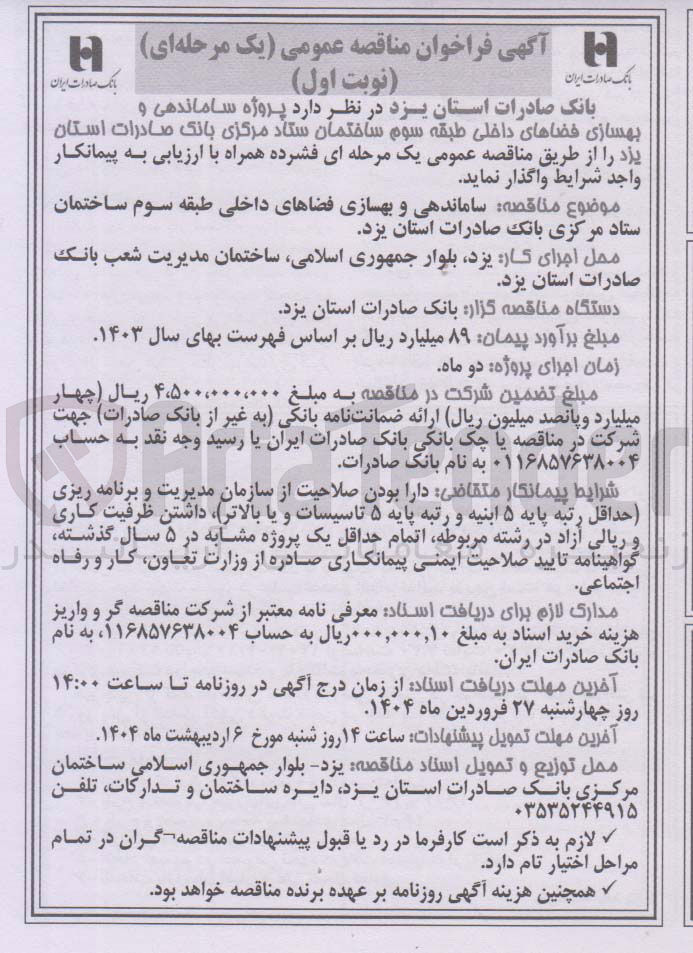 آگهی فراخوان مناقصه عمومی (یک مرحله‌ای)
(نوبت اول)
بانک صادرات ایران
بانک صادرات ایران
بانک صادرات استان یزد در نظر دارد پروژه ساماندهی و
بهسازی فضاهای داخلی طبقه سوم ساختمان ستاد مرکزی بانک صادرات استان
یزد را از طریق مناقصه عمومی یک مرحله ای فشرده همراه با ارزیابی به پیمانکار
واجد شرایط واگذار نماید.
موضوع مناقصه: ساماندهی و بهسازی فضاهای داخلی طبقه سوم ساختمان
ستاد مرکزی بانک صادرات استان یزد.
محل اجرای کار: یزد، بلوار جمهوری اسلامی، ساختمان مدیریت شعب بانک
صادرات استان یزد.
دستگاه مناقصه گزار: بانک صادرات استان یزد.
مبلغ برآورد پیمان: ۸۹ میلیارد ریال بر اساس فهرست بهای سال ۱۴۰۳.
زمان اجرای پروژه: دو ماه.
مبلغ تضمین شرکت در مناقصه به مبلغ ۴،۵۰۰،۰۰۰،۰۰۰ ریال (چهار
میلیارد وپانصد میلیون ریال) ارائه ضمانت‌نامه بانکی (به غیر از بانک صادرات) جهت
شرکت در مناقصه یا چک بانکی بانک صادرات ایران یا رسید وجه نقد به حساب
۰۱۱۶۸۵۷۶۳۸۰۰۴ به نام بانک صادرات.
شرایط پیمانکار متقاضی: دارا بودن صلاحیت از سازمان مدیریت و برنامه ریزی
(حداقل رتبه پایه ۵ ابنیه و رتبه پایه ۵ تاسیسات و یا بالاتر)، داشتن ظرفیت کاری
و ریالی آزاد در رشته مربوطه، اتمام حداقل یک پروژه مشابه در ۵ سال گذشته،
گواهینامه تایید صلاحیت ایمنی پیمانکاری صادره از وزارت تعاون، کار و رفاه
اجتماعی.
مدارک لازم برای دریافت اسناد: معرفی نامه معتبر از شرکت مناقصه گر و واریز
هزینه خرید اسناد به مبلغ ۰۰۰,۰۰۰,۱۰ریال به حساب ۱۱۶۸۵۷۶۳۸۰۰۴، به نام
بانک صادرات ایران.
آخرین مهلت دریافت اسناد: از زمان درج آگهی در روزنامه تا ساعت ۱۴:۰۰
روز چهارشنبه ۲۷ فروردین ماه ۱۴۰۴.
آخرین مهلت تحویل پیشنهادات: ساعت ۱۴روز شنبه مورخ ۶ اردیبهشت ماه ۱۴۰۴.
محل توزیع و تحویل اسناد مناقصه: یزد- بلوار جمهوری اسلامی ساختمان
مرکزی بانک صادرات استان یزد، دایره ساختمان و تدارکات، تلفن
۰۳۵۳۵۲۴۴۹۱۵
✓ لازم به ذکر است کارفرما در رد یا قبول پیشنهادات مناقصه¬گران در تمام
مراحل اختیار تام دارد.
✓ همچنین هزینه آگهی روزنامه بر عهده برنده مناقصه خواهد بود.